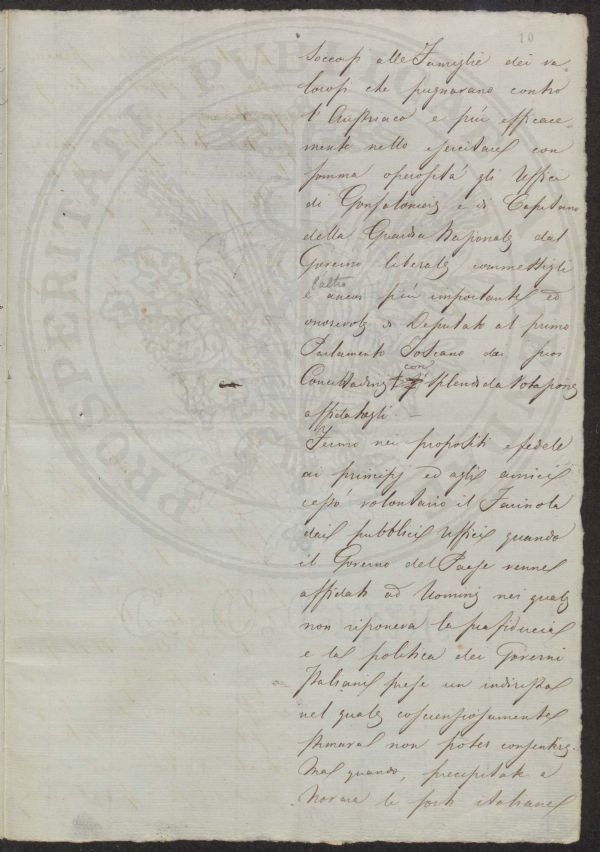 10
soccorsi alle Famiglie dei va-
lorosi che pugnarano contro
l'Austriaco e più efficace-
mente nello esercitare con
somma operosità gli Uffici
di Gonfaloniere e di Capitano
della Guardia Nazionale dal
Governo liberale commessigli
e l'altro ancor più importante ed
onorevole di Deputato al primo
Parlamento Toscano dai suoi
Concittadini con splendida votazione
affidatogli. —
Fermo nei propositi e fedele
ai principj ed agli amici
cessò volontario il Farinola
dai pubblici Uffici quando
il Governo del Paese venne
affidato ad Uomini nei quali
non riponeva la sua fiducia
e la politica dei Governi
Italiani prese un indirizzo
nel quale coscienziosamente
stimava non poter consentire.
Ma quando, precipitate a
Novara le sorti italiane
PROSPERITATI PUBLICAE